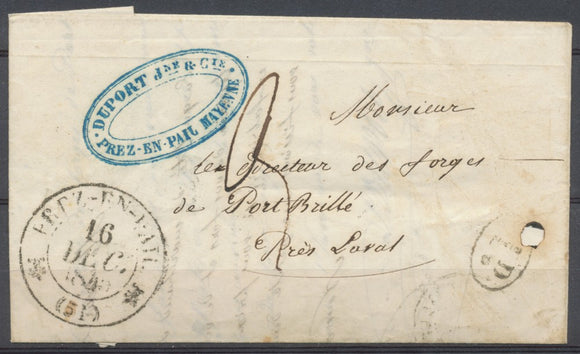 DUPORT Jne & Cie
PREZ-EN-PAIL MAYENNE
Monsieur
le Directeur des forges
de Port Brillé
Près Laval
PREZ-EN-PAIL
16
DEC.
(51)